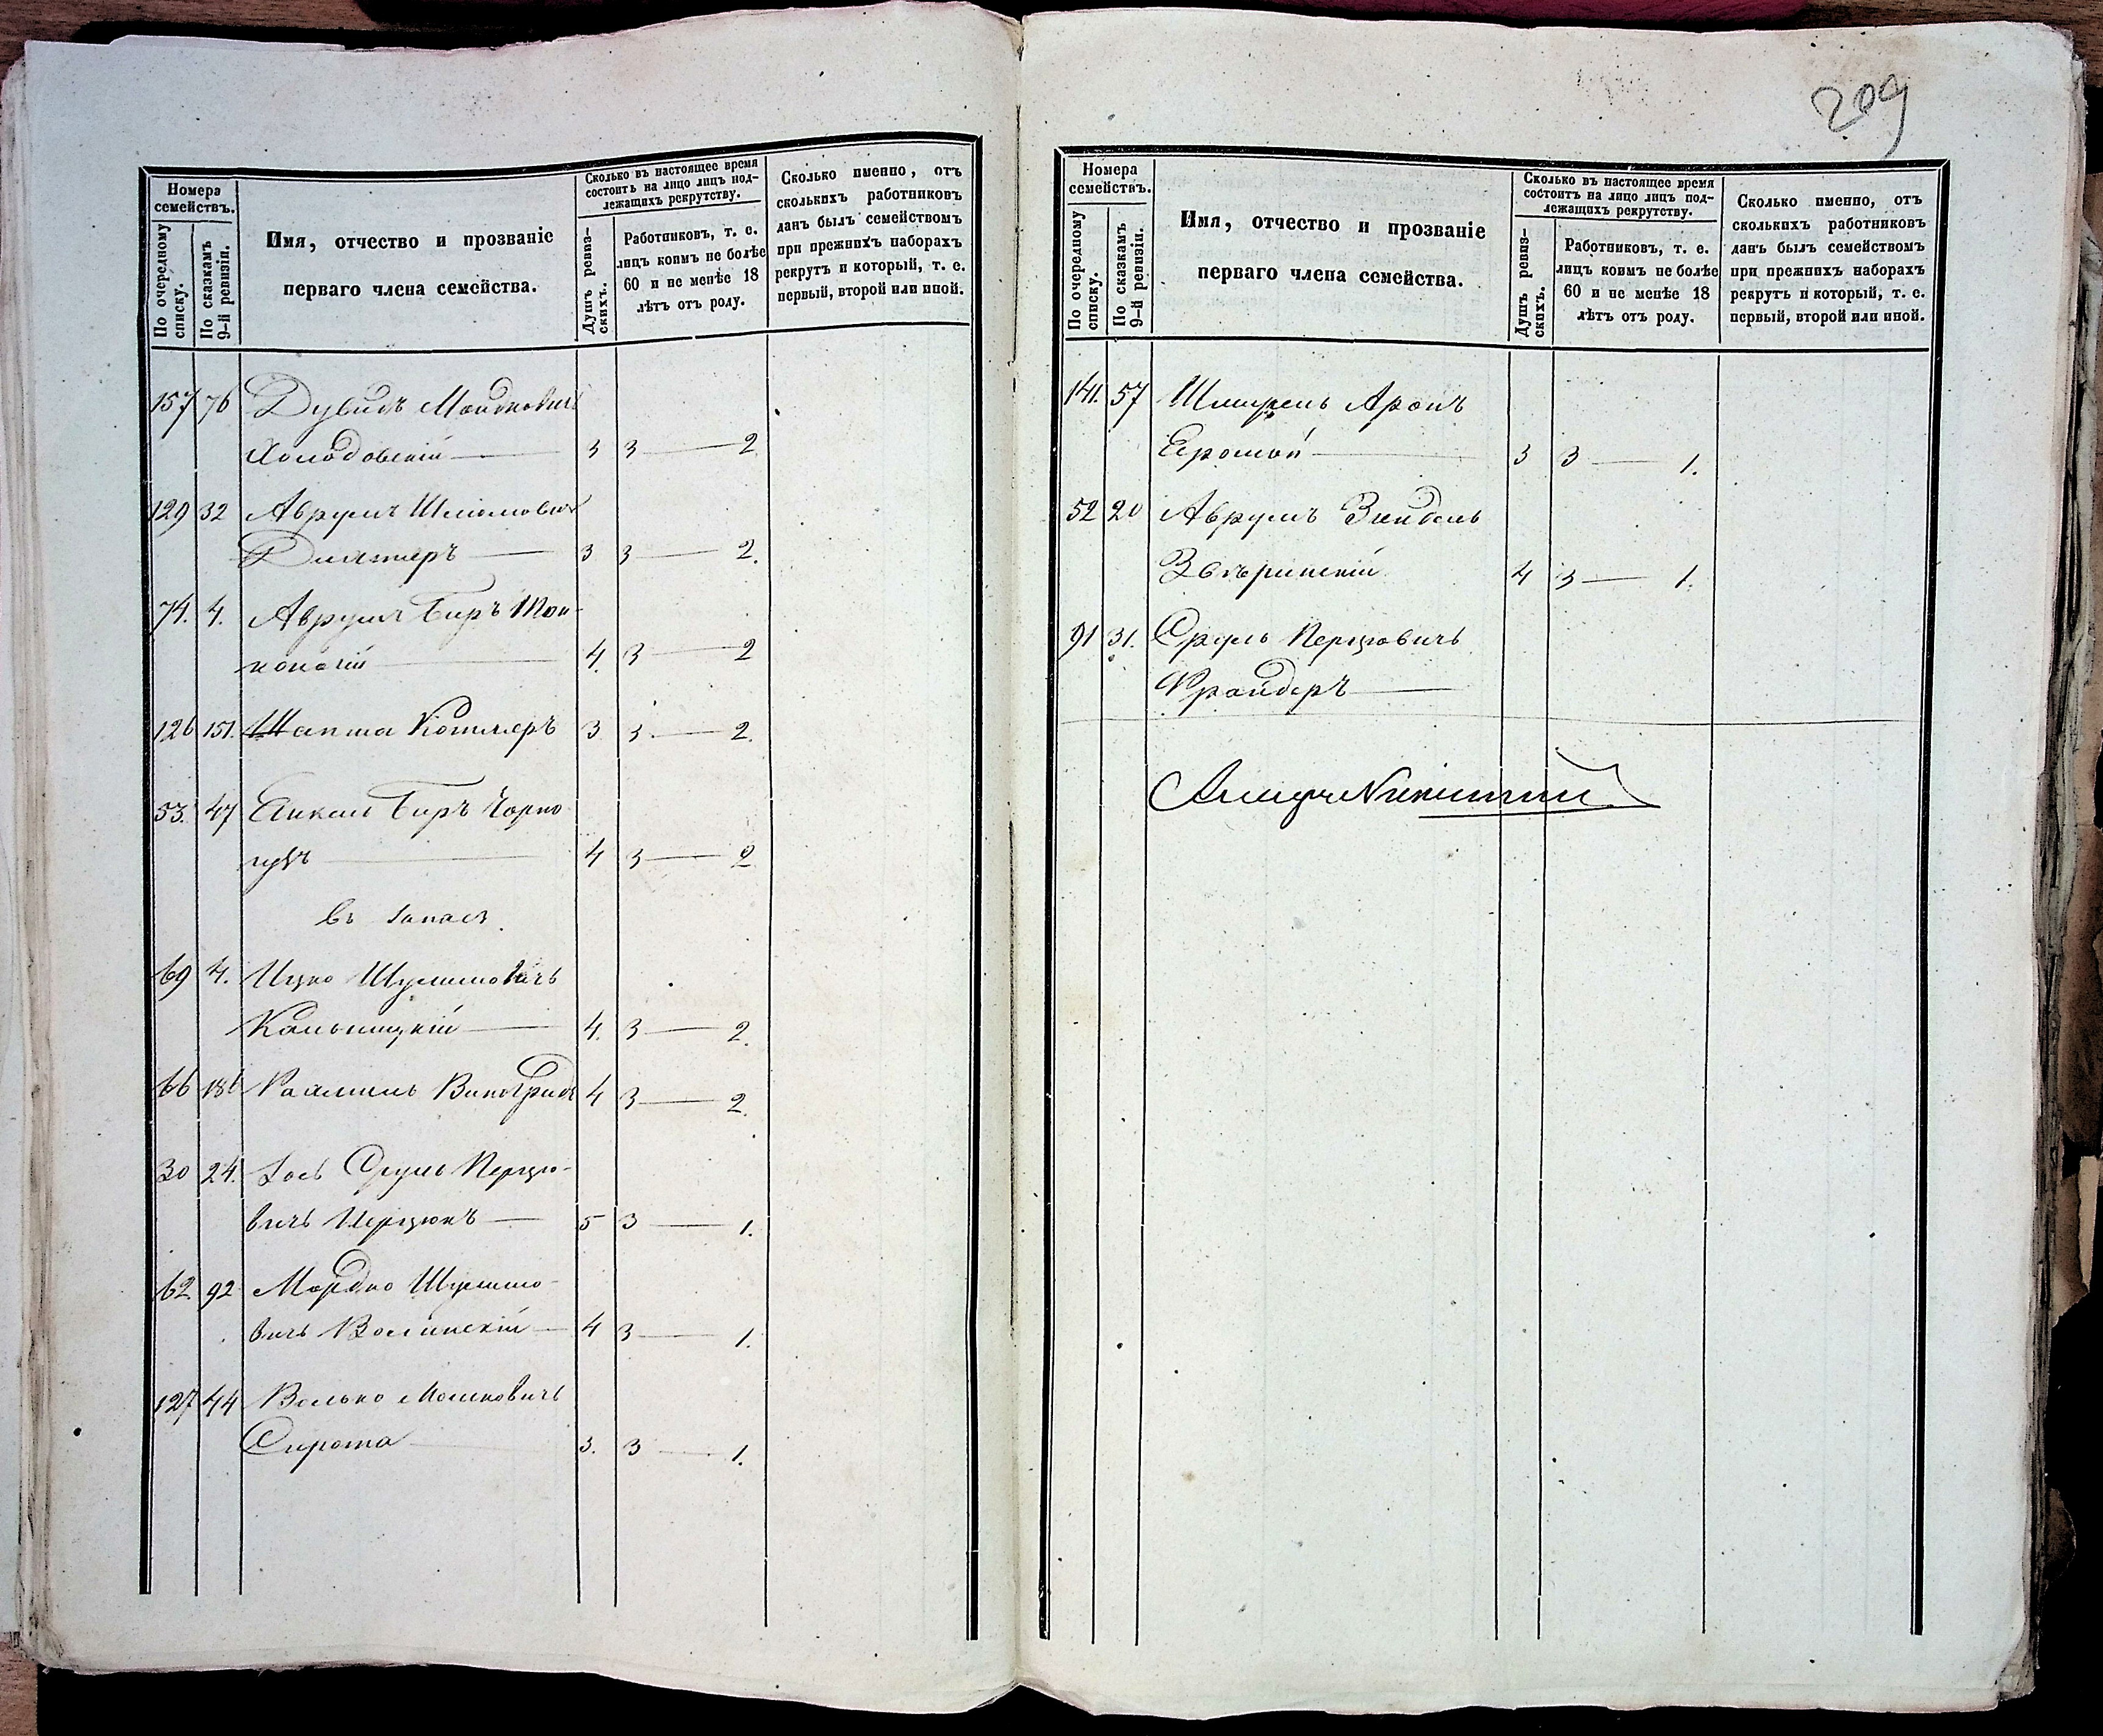 Номера семействъ.
По очередному списку.
По сказкамъ 9-й ревизіи.
Имя, отчество и прозваніе
перваго члена семейства.
Сколько въ настоящее время
состоитъ на лицо лицъ под-
лежащихъ рекрутству.
Душъ ревиз-
скихъ.
Работниковъ, т. е.
лицъ коимъ не болѣе
60 и не менѣе 18
лѣтъ отъ роду.
Сколько именно, отъ
сколькихъ работниковъ
данъ былъ семействомъ
при прежнихъ наборахъ
рекрутъ и который, т. е.
первый, второй или иной.
157 76 Дувидъ
Холодовскій — 3 3 — 2
129 32 Аврумъ Шліомович
3 3 — 2.
74. 4. Аврумъ Беръ
4. 3 — 2
126 151. Шапша Котляръ 3 3. — 2.
53. 47 Беръ Чорно
гузъ — 4 3 — 2
въ запасъ.
69 4. Ицко Шулимовичъ
Кальницкій — 4. 3 — 2.
66 186 Виноградъ 4 3 — 2.
30 24. Іось Сруль Перцо-
вичъ Перцюкъ — 5 3 — 1.
62. 92 Мордко Шулимо-
вичъ Волинскій — 4 3 — 1.
127 44 Волько Мошковичъ
Сирота — 3. 3 — 1.
209
Номера
семействъ.
По очередному
списку.
По сказкамъ
9-й ревизіи.
Имя, отчество и прозваніе
перваго члена семейства.
Сколько въ настоящее время
состоитъ на лицо лицъ под-
лежащихъ рекрутству.
Душъ ревиз-
скихъ.
Работниковъ, т. е.
лицъ коимъ не болѣе
60 и не менѣе 18
лѣтъ отъ роду.
Сколько именно, отъ
сколькихъ работниковъ
данъ былъ семействомъ
при прежнихъ наборахъ
рекрутъ и который, т. е.
первый, второй или иной.
141. 57 Шмирель Аронъ
3 3 — 1.
52 20 Аврумъ Зиндель
Звѣринскій 4 3 — 1.
91 31. Сруль Перцовичъ
Крайдеръ —